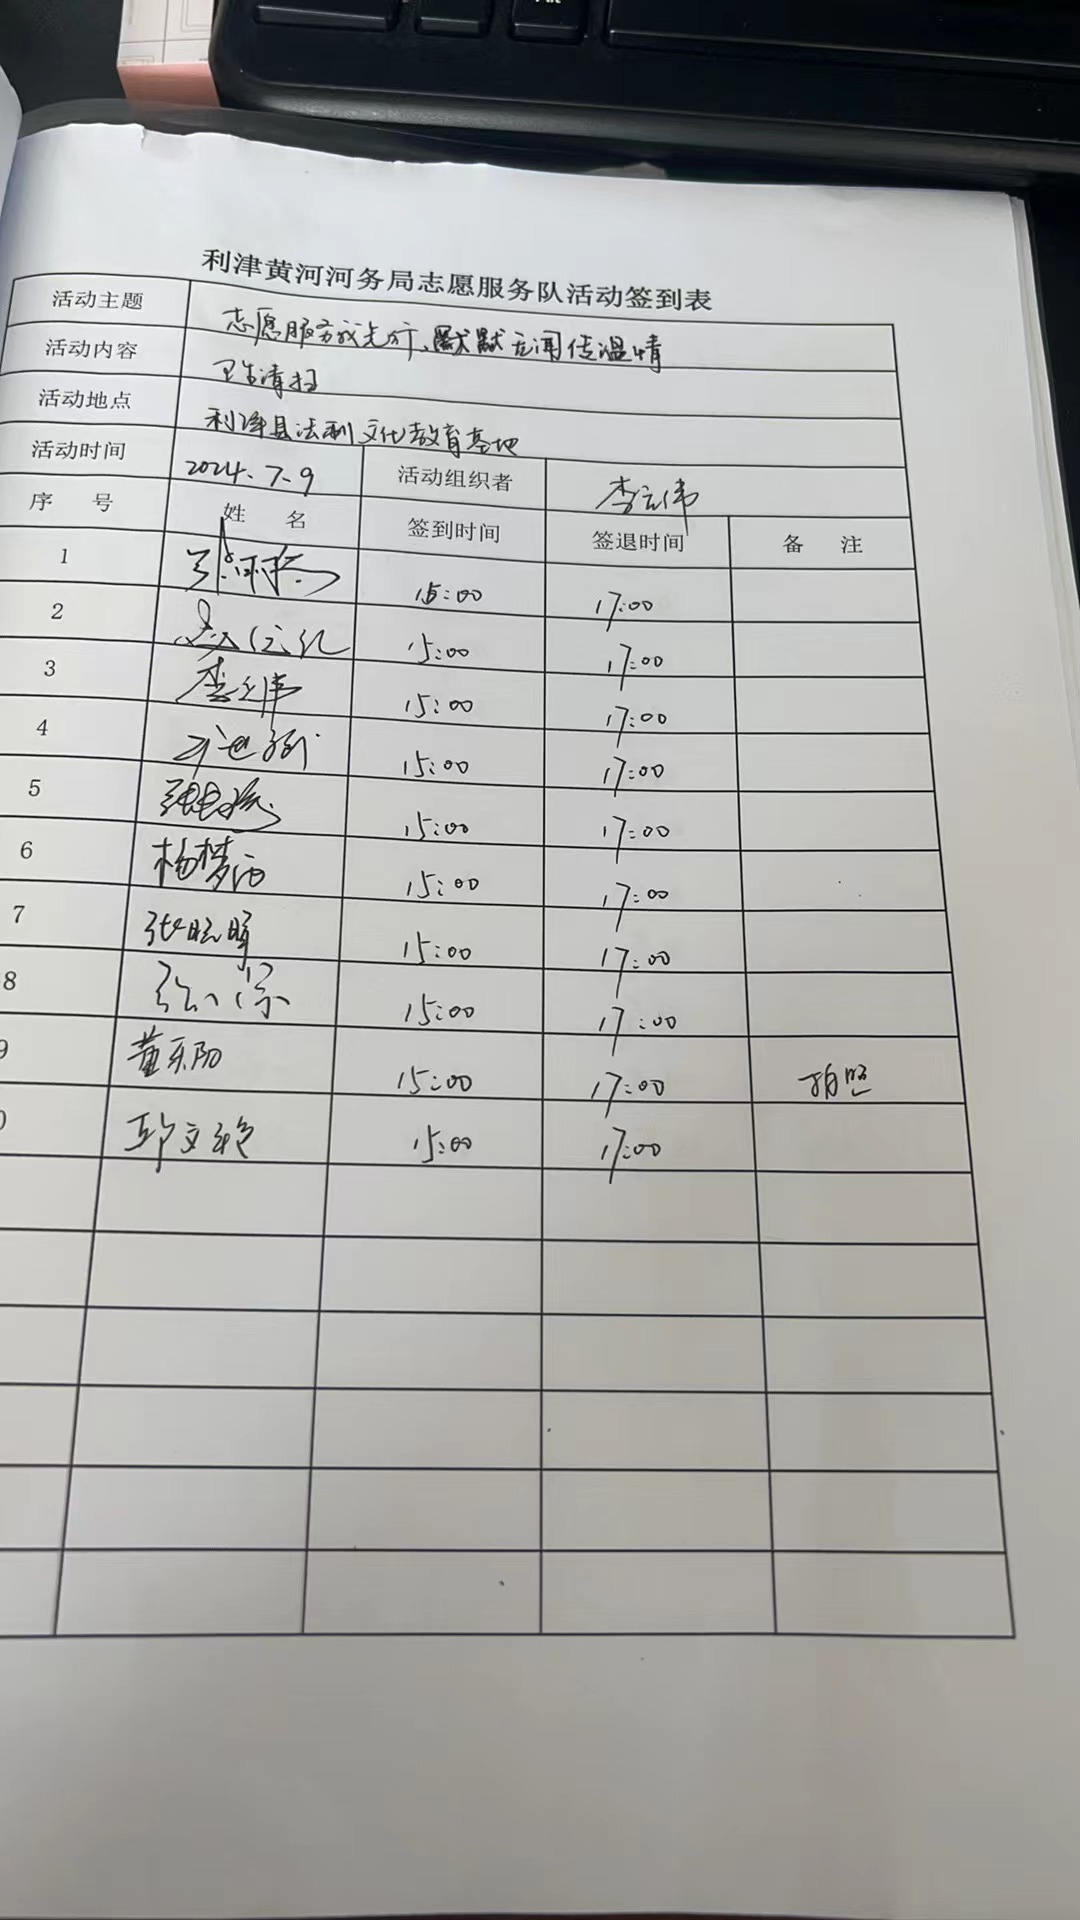 利津黄河河务局志愿服务队活动签到表
活动主题 志愿服务放光芒、默默无闻传温情
活动内容 卫生清扫
活动地点 利津县法制文化教育基地
活动时间 2024.7.9 活动组织者 李立伟
序 号 姓 名 签到时间 签退时间 备 注
1 15:00 17:00
2 15:00 17:00
3 李立伟 15:00 17:00
4 15:00 17:00
5 15:00 17:00
6 杨梦 15:00 17:00
7 张晓晖 15:00 17:00
8 15:00 17:00
9 董乐阳 15:00 17:00 拍照
0 邱文艳 15:00 17:00